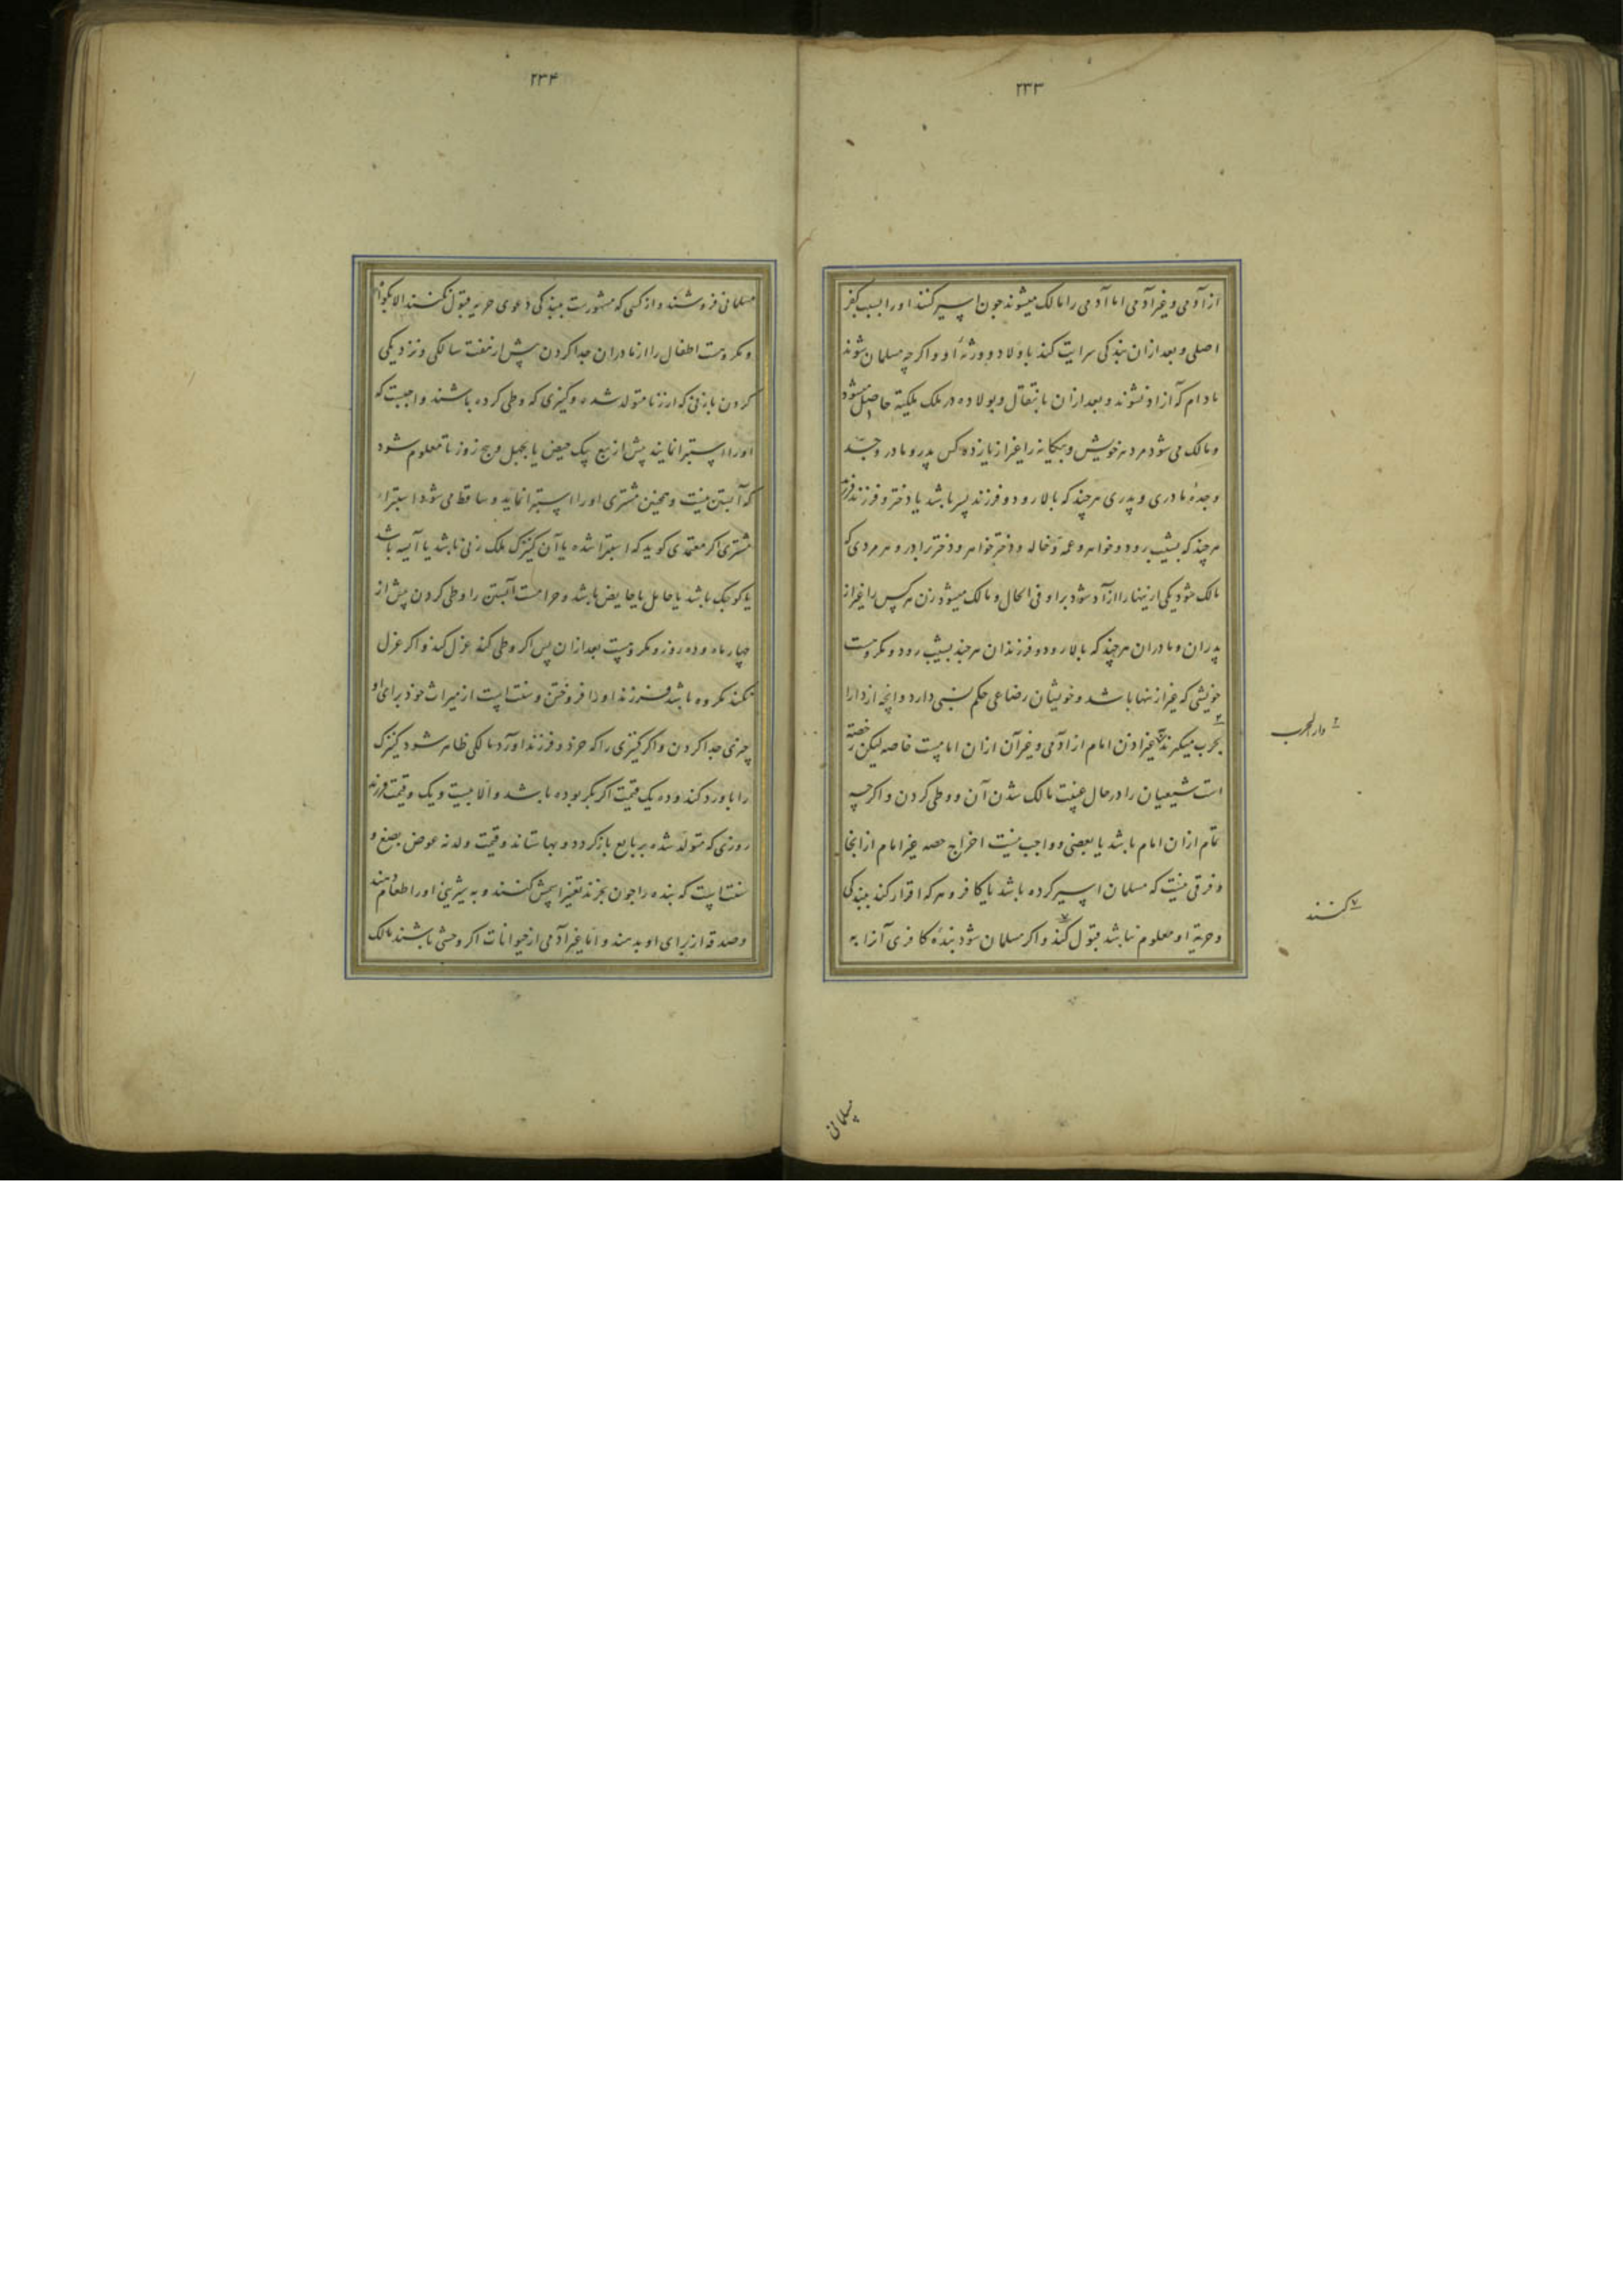 ۲۳۳
از آدمی و غیر آدمی اما آدمی را مالک میشوند چون اسیر کنند او را بسبب کفر
اصلی و بعد از ان بندکی سرایت کند باولاد و ورثهٔ او و اکر چه مسلمان شوند
مادام که آزاد نشوند و بعد از ان بانتقال و بولاده در ملک ملکیة حاصل میشود
و مالک می شود مرد هر خویش و بیکانه را غیر از یازده کس پدر و مادر و جد
و جدهٔ مادری و پدری هر چند که بالا رود و فرزند پسر باشد یا دختر و فرزند فرزند
هر چند که بشیب رود و خواهر و عمه و خاله و دختر خواهر و دختر برادر و هر مردی که
مالک شود یکی ازینها را آزاد شود بر او فی الحال و مالک میشود زن هر کس را غیر از
پدران و مادران هر چند که بالا رود و فرزندان هر چند بشیب رود و مکروهست
خویشی که غیر ازینها باشد و خویشان رضاعی حکم نسبی دارد و آنچه از دارا
بحرب میکیرند بغیر اذن امام از آدمی و غیر آن از ان امامست خاصه لیکن رخصة
۲ دار الحرب
است شیعیان را در حال غیبت مالک شدن آن و وطی کردن و اکر چه
تمام از ان امام باشد یا بعضی و واجب نیست اخراج حصه غیر امام از انجا
و فرقی نیست که مسلمان اسیر کرده باشد یا کافر و هر که اقرار کند ببندکی
و حریة او معلوم نباشد قبول کند و اکر مسلمان شود بندهٔ کافری آنرا به
۷ کنند
مسلمانی
۲۳۴
مسلمانی فروشند و از کسی که مشهورست ببندکی دعوی حریه قبول نکنند الا بکواه
و مکروهست اطفال را از مادران جدا کردن پیش از هفت سالکی و نزدیکی
کردن بازنی که از زنا متولد شده و کنیزی که وطی کرده باشند واجبست که
او را استبرا نمایند پیش از بیع بیک حیض یا بچهل و پنج روز تا معلوم شود
که آبستن نیست و همچنین مشتری او را استبرا نماید و ساقط می شود استبراء
مشتری اکر معتمدی کوید که استبرا شده یا آن کنیزک ملک زنی باشد یا آیسه باشد
یا کوچک باشد یا حامل یا حایض باشد و حرامست آبستن را وطی کردن پیش از
چهار ماه و ده روز و مکروهست بعد از ان پس اکر وطی کند عزل کند و اکر عزل
نکند مکروه باشد فرزند او را فروختن و سنت است از میراث خود برای او
چیزی جدا کردن و اکر کنیزی را که خرد و فرزند آورد مالکی ظاهر شود کنیزک
را با و رد کند و ده یک قیمت اکر بکر بوده باشد و الا بیست و یک و قیمت فرزند
روزی که متولد شده بر بایع باز کردد و بها ستاند و قیمت ولد نه عوض بضع و
سنت است که بنده را چون بخرند تغییر اسمش کنند و به شیرینی او را اطعام دهند
و صدقه از برای او بدهند و اما غیر آدمی از حیوانات اکر وحشی باشند مالک